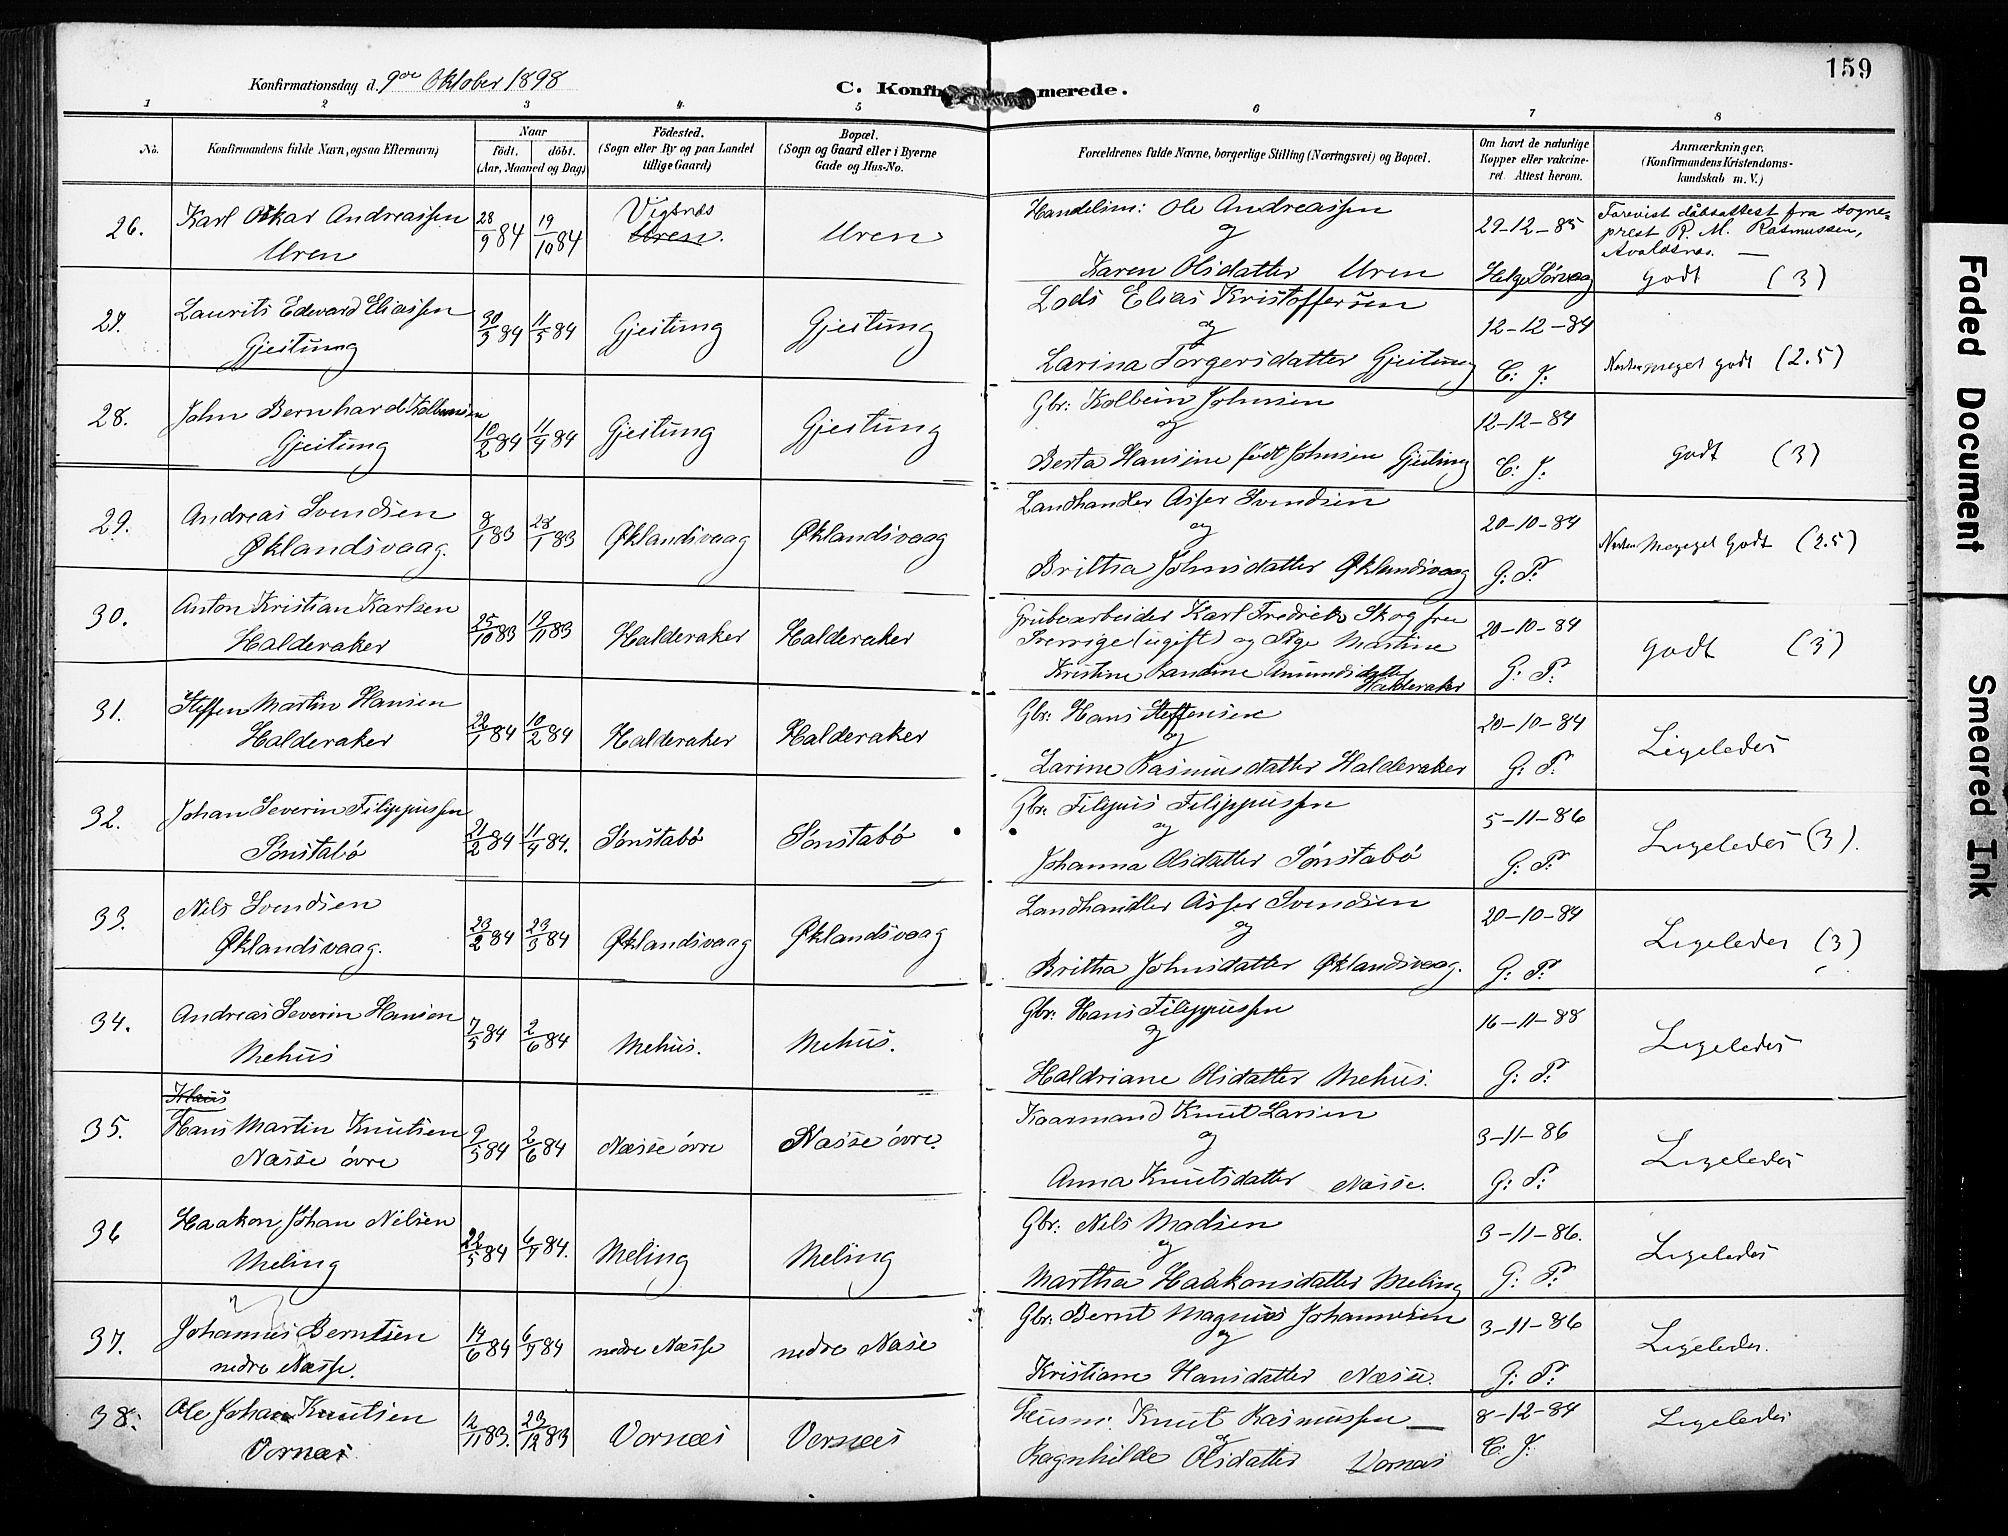 159
Konfirmationsdag d. 9de Oktober 1898
C. Konfirmerede.
1 2 3 4. 5 6 7 8
No.
Konfirmandens fulde Navn, ogsaa Efternavn)
Naar
födt. döbt.
(Aar, Maaned og Dag)
Födested.
(Sogn eller By og paa Landet
tillige Gaard)
Bopæl.
(Sogn og Gaard eller i Byerne
Gade og Hus-No.
Forældrenes fulde Navne, borgerlige Stilling (Næringsvei) og Bopæl.
Om havt de naturlige
Kopper eller vakcine-
ret. Attest herom.
Anmærkninger.
(Konfirmandens Kristendoms-
kundskab m. V.)
26. Karl Oskar Andreassen
Uren
28/9 84 19/10 84
Vigsnæs
Uren.
Uren
Handelsm: Ole Andreassen
og
Karen Olsdatter Uren
29-12-85
Helge Sörvaag
Forevist dåbsattest fra sogne-
prest R. M. Rasmussen,
Avaldsnes. —
godt (3)
27. Laurits Edevard Eliassen
Gjeitung
30/3 84 11/5 84
Gjeitung
Gjeitung
Lods Elias Kristoffersen
og
Larina Torgersdatter Gjeitung
12-12-84
C: J:
Næsten meget godt (2.5)
28. John Bernhard Kolbensen
Gjeitung
10/2 84 11/4 84
Gjeitung
Gjeitung
Gbr: Kolbein Johnsen
og
Berta Hansine födt Johnsen Gjeitung
12-12-84
C: J:
godt (3)
29. Andreas Svendsen
Øklandsvaag.
8/1 83 28/1 83
Øklandsvaag
Øklandsvaag
Landhandler Asser Svendsen
og
Britha Johnsdatter Øklandsvaag
20-10-84
G: P:
Næsten Megeget Godt (2.5)
30. Anton Kristian Karlsen
Halderaker
25/10 83 19/11 83
Halderaker
Halderaker
Grubearbeider Karl Fredrik Skog fra
Sverrige (ugift) og Pige Martine
Kristine Randine Amundsdatter
Halderaker
20-10-84
G: P:
godt (3)
31. Steffen Martin Hansen
Halderaker
22/1 84 10/2 84
Halderaker
Halderaker
Gbr: Hans Steffensen
og
Larine Rasmusdatter Halderaker
20-10-84
G: P:
Ligeledes
32. Johan Severin Filippussen
Sönstabö
21/2 84 11/4 84.
Sönstabö
Sönstabö
Gbr. Filipus Filippussen
og
Johanna Olsdatter Sönstabö
5-11-86
G: P:
Ligeledes (3).
33. Nils Svendsen
Øklandsvaag.
23/2 84 23/3 84
Øklandsvaag
Øklandsvaag
Landhandler Asser Svendsen
og
Britha Johnsdatter Øklandsvaag.
20-10-84
G: P:
Ligeledes (3)
34. Andreas Severin Hansen
Mehus
7/5 84 2/6 84
Mehus.
Mehus.
Gbr: Hans Filippussen
og
Haldriane Olsdatter Mehus.
16-11-88
G: P:
Ligeledes
Klaus
35. Hans Martin Knutsen
Næsse övre
9/5 84 2/6 84
Næsse övre
Næsse övre.
Kaarmand Knut Larsen
og
Anna Knutsdatter Næsse.
3-11-86
G: P:
Ligeledes
36 Haakon Johan Nilsen
Meling
22/5 84 6/7 84.
Meling
Meling
Gbr: Nils Madsen
og
Martha Haakonsdatter Meling
3-11-86.
G: P:
Ligeledes
37. Johannes Berntsen
nedre Næsse.
14/6 84 6/7 84
nedre Næsse
nedre Næsse
Gbr: Bernt Magnus Johannesen
og
Kristiane Hansdatter Næsse.
3-11-86
G: P:
Ligeledes.
38. Ole Johan Knutsen
Vornæs
12/11 83. 23/12 83
Vornæs
Vornæs
Husm: Knut Rasmussen
og
Ragnhilde Olsdatter Vornæs
8-12-84
C: J:
Ligeledes
Faded Document
Smeared Ink